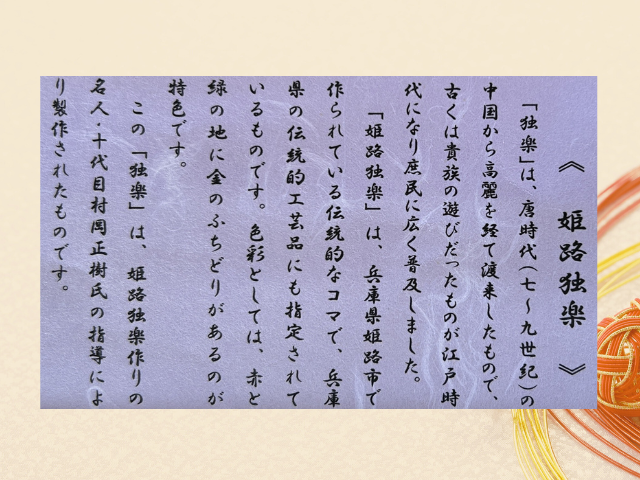 《 姫路独楽 》
「独楽」は、唐時代(七～九世紀)の
中国から高麗を経て渡来したもので、
古くは貴族の遊びだったものが江戸時
代になり庶民に広く普及しました。
「姫路独楽」は、兵庫県姫路市で
作られている伝統的なコマで、兵庫
県の伝統的工芸品にも指定されて
いるものです。色彩としては、赤と
緑の地に金のふちどりがあるのが
特色です。
この「独楽」は、姫路独楽作りの
名人・十代目村岡正樹氏の指導によ
り製作されたものです。